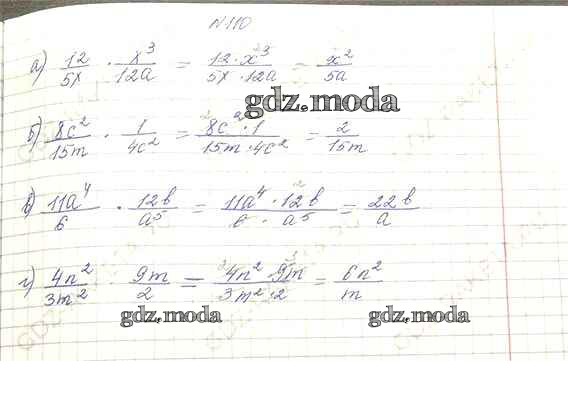 N 110
а) 12/5x · x³/12a = 12·x³/5x·12a = x²/5a
gdz.moda
б) 8c²/15m · 1/4c² = 8c²·1/15m·4c² = 2/15m
в) 11a⁴/6 · 12b/a⁵ = 11a⁴·12b/6·a⁵ = 22b/a
г) 4n²/3m² · 9m/2 = 4n²·9m/3m²·2 = 6n²/m
gdz.moda gdz.moda